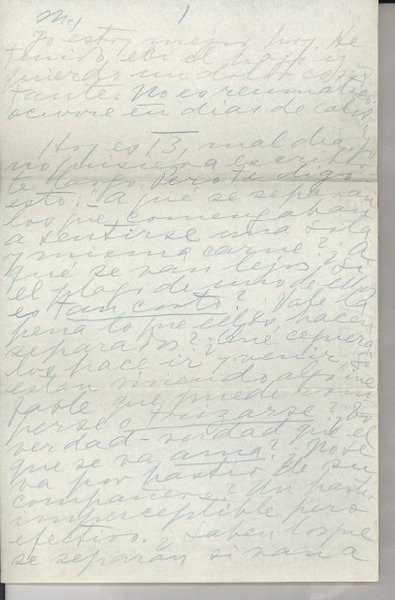 1
Yo estoy mejor hoy. He
tenido en el brazo
izquierdo un dolor cons
tante. No es reumatis
ocurre en días de calor.
Hoy es 13, mal día. Yo
no quisiera escribir
te largo. Pero te digo
esto: ¿A qué se separan
los que comenzaban
a sentirse una sola
y misma carne? ¿A
qué se van lejos si
el plazo de uno de ellos
es tan corto? ¿Vale la
pena lo que ellos hacen
separados? ¿Qué ceguera
los hace ir y venir, si
están viviendo algo ine
fable que puede rom
perse o trizarse? ¿Es
verdad-verdad que el
que se va ama? ¿No se
va por hastío de su
compañero? Un hastío
imperceptible pero
efectivo. ¿Saben los que
se separan si van a